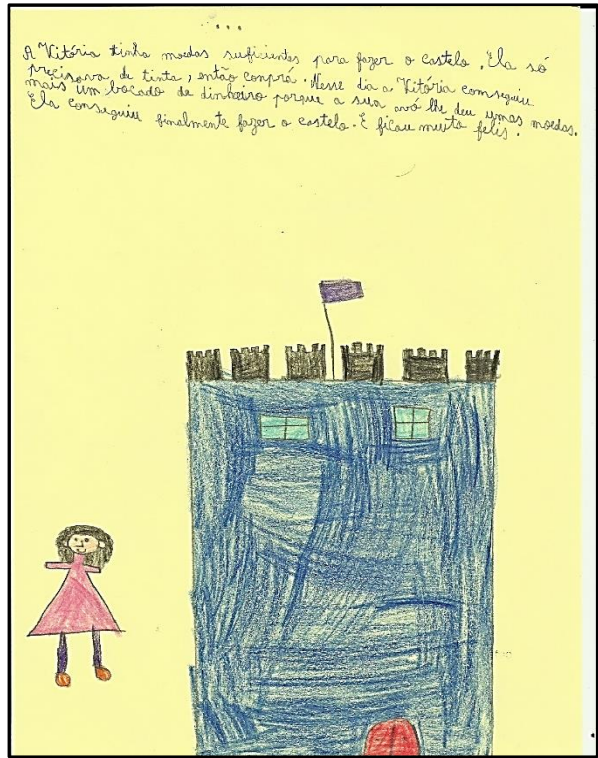 ...
A Vitória tinha moedas suficientes para fazer o castelo. Ela só
precisava de tinta, então conprá. Nesse dia a Vitória comseguiu
mais um bocado de dinheiro porque a sua avó lhe deu umas moedas.
Ela conseguiu finalmente fazer o castelo. E ficou muito felis.